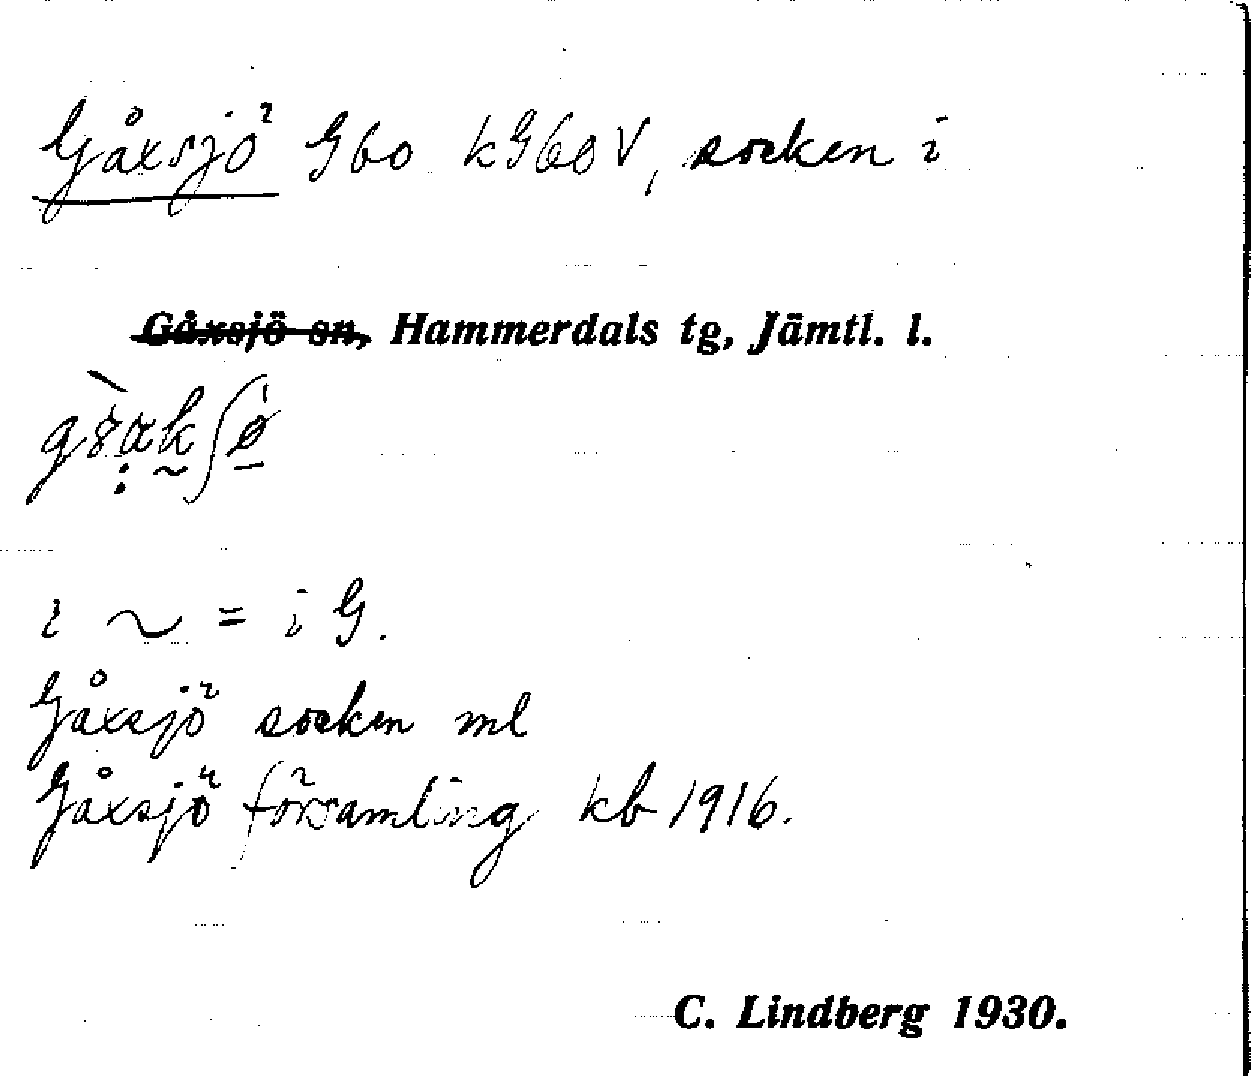 Gåxsjö G60 kG60V, socken i
Gåxsjö sn, Hammerdals tg, Jämtl. l.
i ~ = i G.
Gåxsjö socken ml
Gåxsjö församling kb 1916.
C. Lindberg 1930.